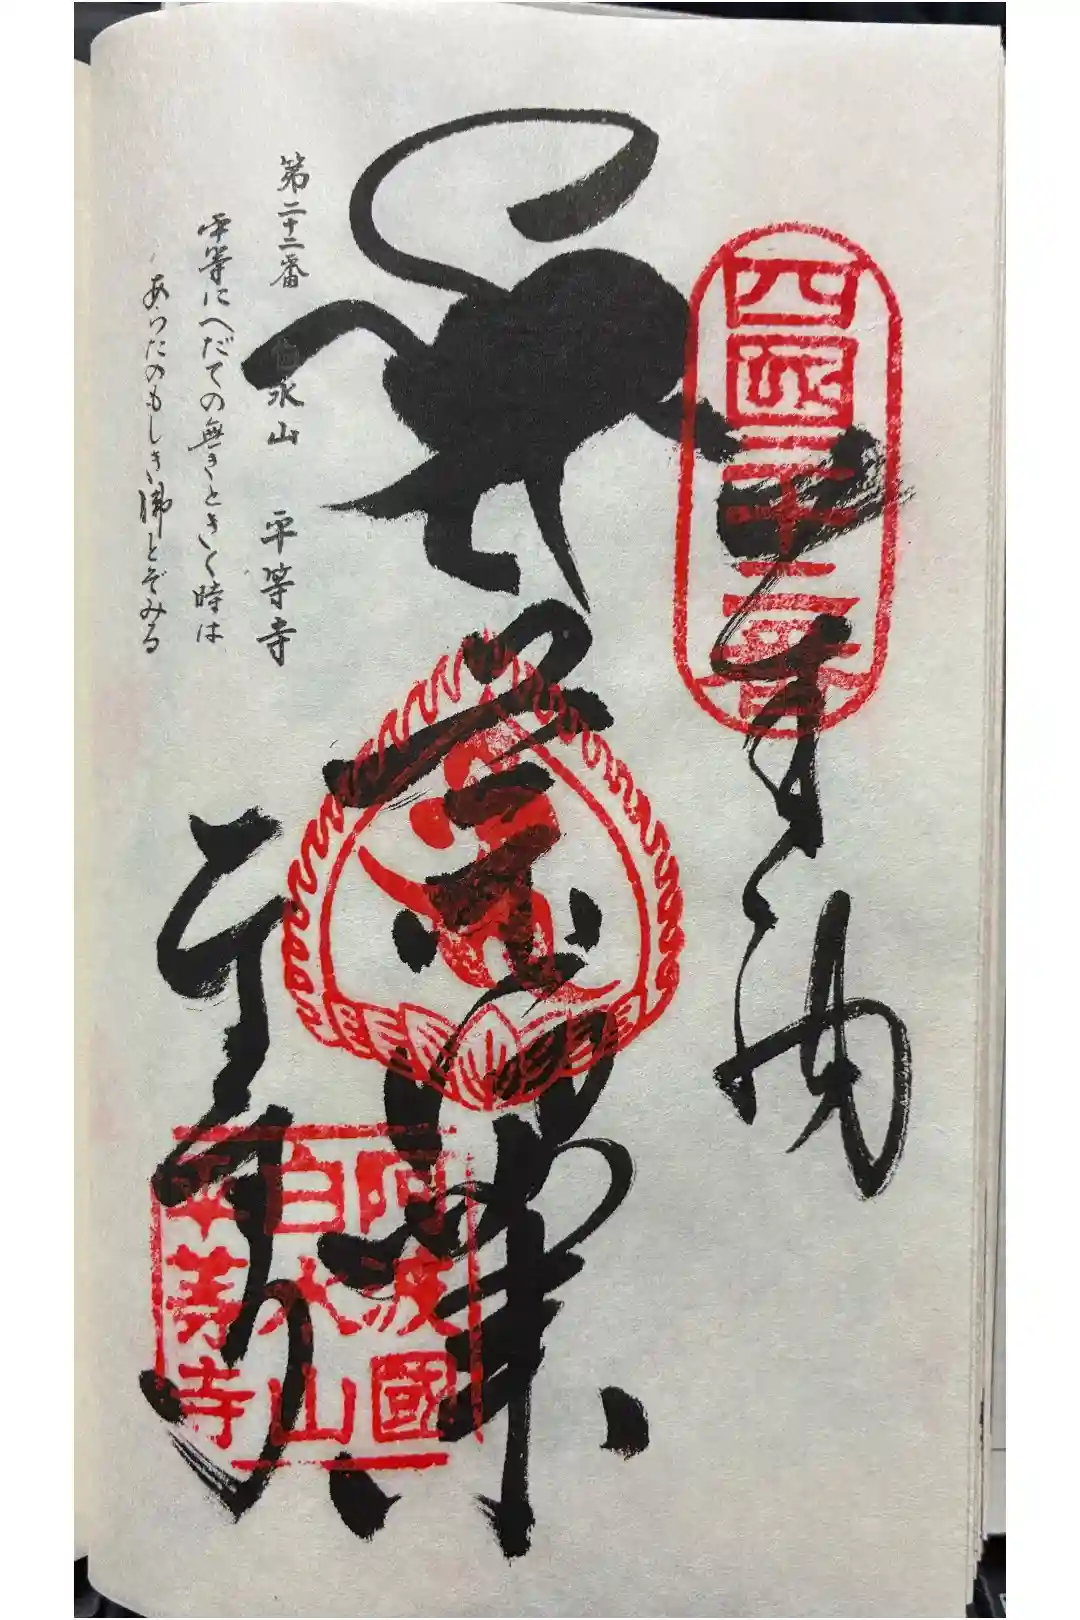 四国二十二番
奉納
第二十二番 白水山 平等寺
平等にへだての無きときく時は
あらたのもしき佛とぞみる
平等寺
阿波國
白水山
平等寺